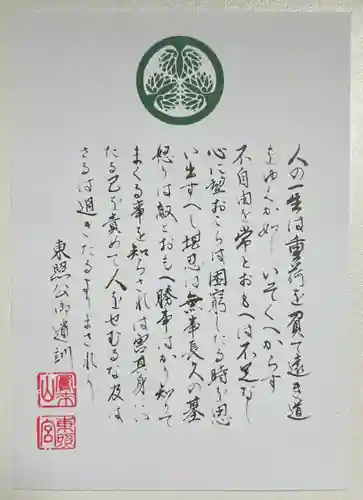 人の一生は重荷を負て遠き道
をゆくが如し いそぐへからす
不自由を常とおもへは不足なし
心に望おこらは困窮したる時を思
い出すへし堪忍は無事長久の基
怒りは敵とおもへ勝事はかり知りて
まくる事を知らされは害其身にい
たる己を責めて人をせむるな及は
さるは過きたるよりまされり
東照公御遺訓